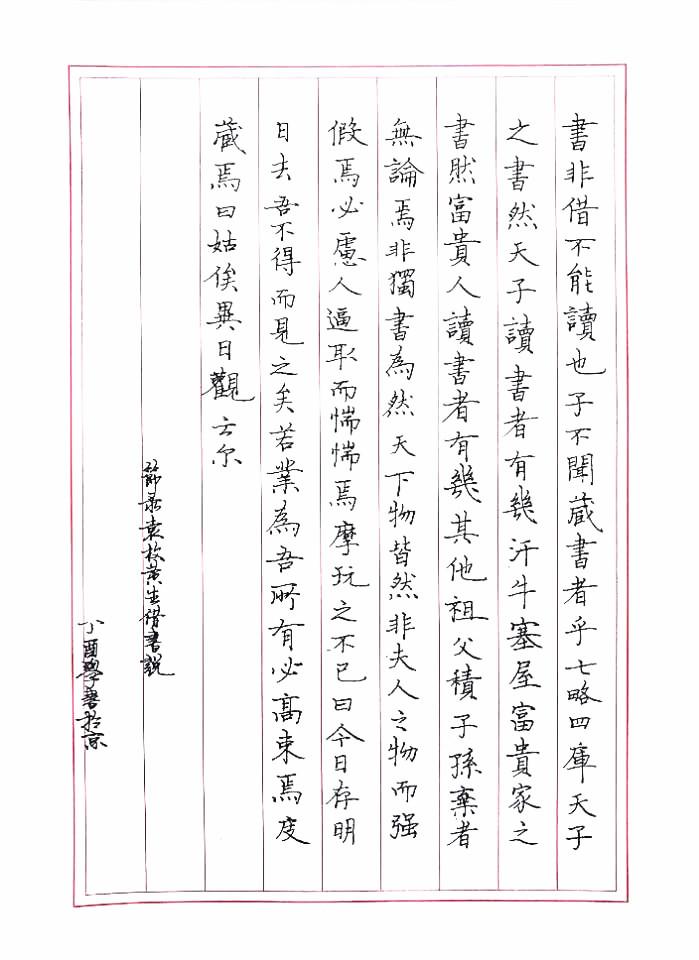 書非借不能讀也子不聞藏書者乎七略四庫天子
之書然天子讀書者有幾汗牛塞屋富貴家之
書然富貴人讀書者有幾其他祖父積子孫棄者
無論焉非獨書為然天下物皆然非夫人之物而强
假焉必慮人逼取而惴惴焉摩玩之不已曰今日存明
日去吾不得而見之矣若業為吾所有必高束焉庋
藏焉曰姑俟異日觀云尔
節录袁枚黄生借書說
丁酉學書於京